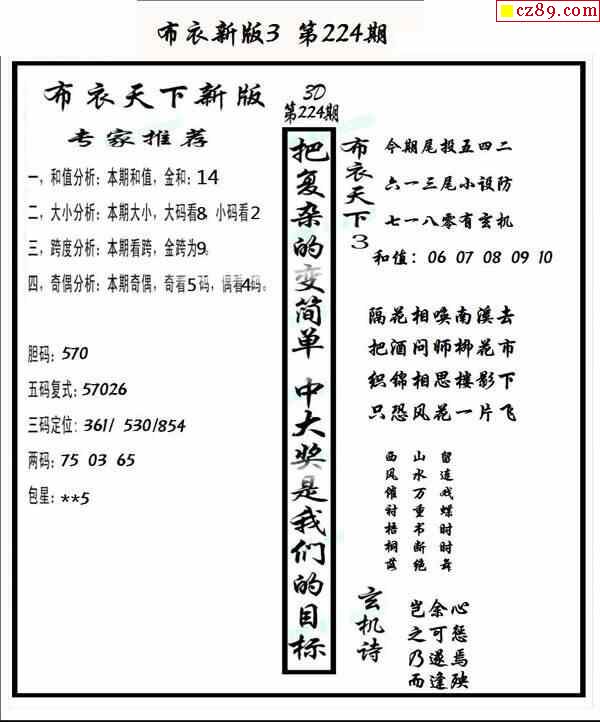 cz89.com
布衣新版3 第224期
布衣天下新版
专家推荐
一，和值分析：本期和值，金和：14
二，大小分析：本期大小，大码看8 小码看2
三，跨度分析：本期看跨，金跨为9。
四，奇偶分析：本期奇偶，奇看5码，偶看4码。
胆码：570
五码复式：57026
三码定位：361/ 530/854
两码：75 03 65
包星：**5
3D
第224期
把复杂的变简单 中大奖是我们的目标
布衣天下3
今期尾投五四二
六一三尾小设防
七一八零有玄机
和值：06 07 08 09 10
隔花相唤南溪去
把酒问师柳花市
织锦相思楼影下
只恐风花一片飞
西风催衬梧桐落
山水万重书断绝
留连戏蝶时时舞
玄机诗
岂余心
之可惩
乃遂焉
而逢殃